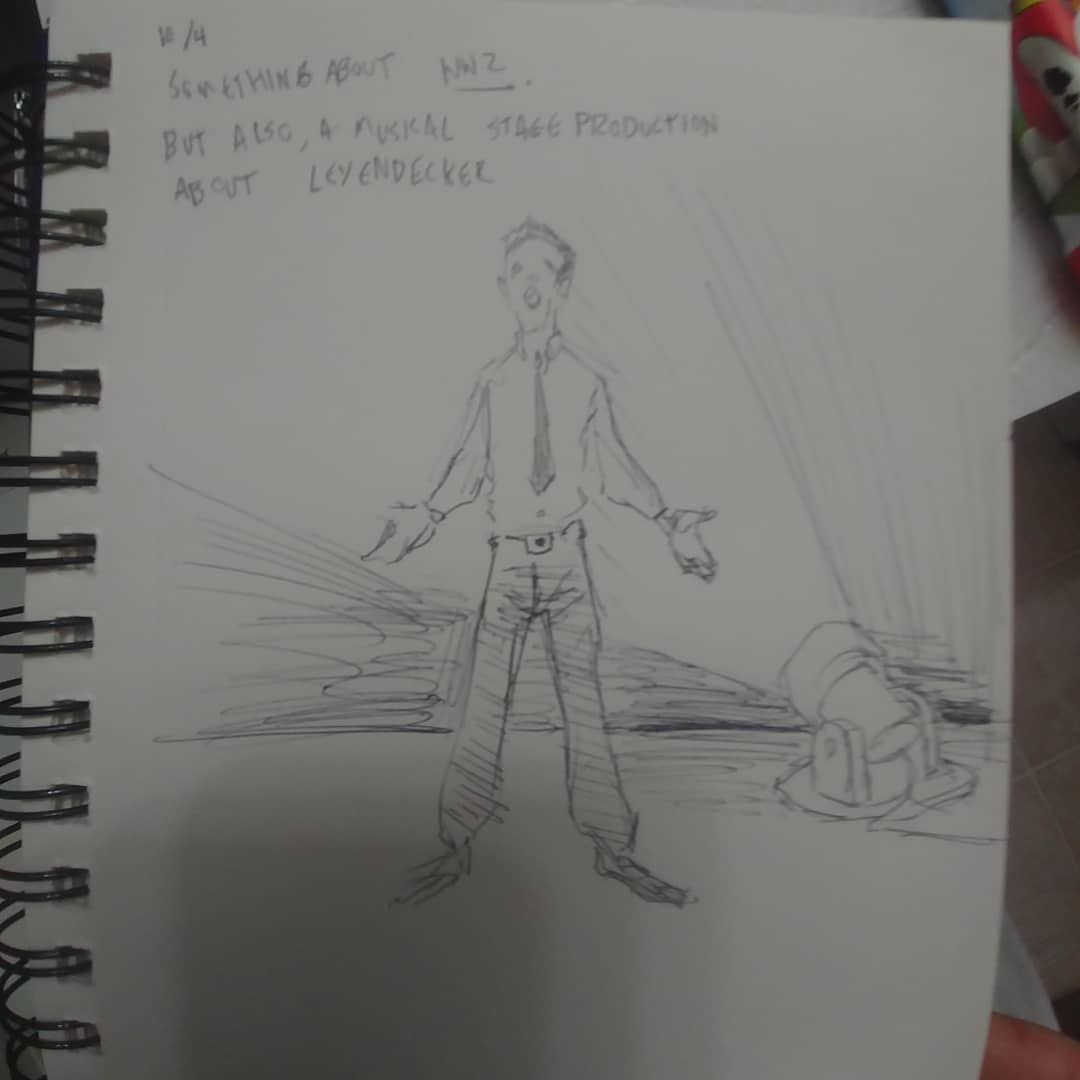 12/4
SOMETHING ABOUT WW2.
BUT ALSO, A MUSICAL STAGE PRODUCTION
ABOUT LEYENDECKER